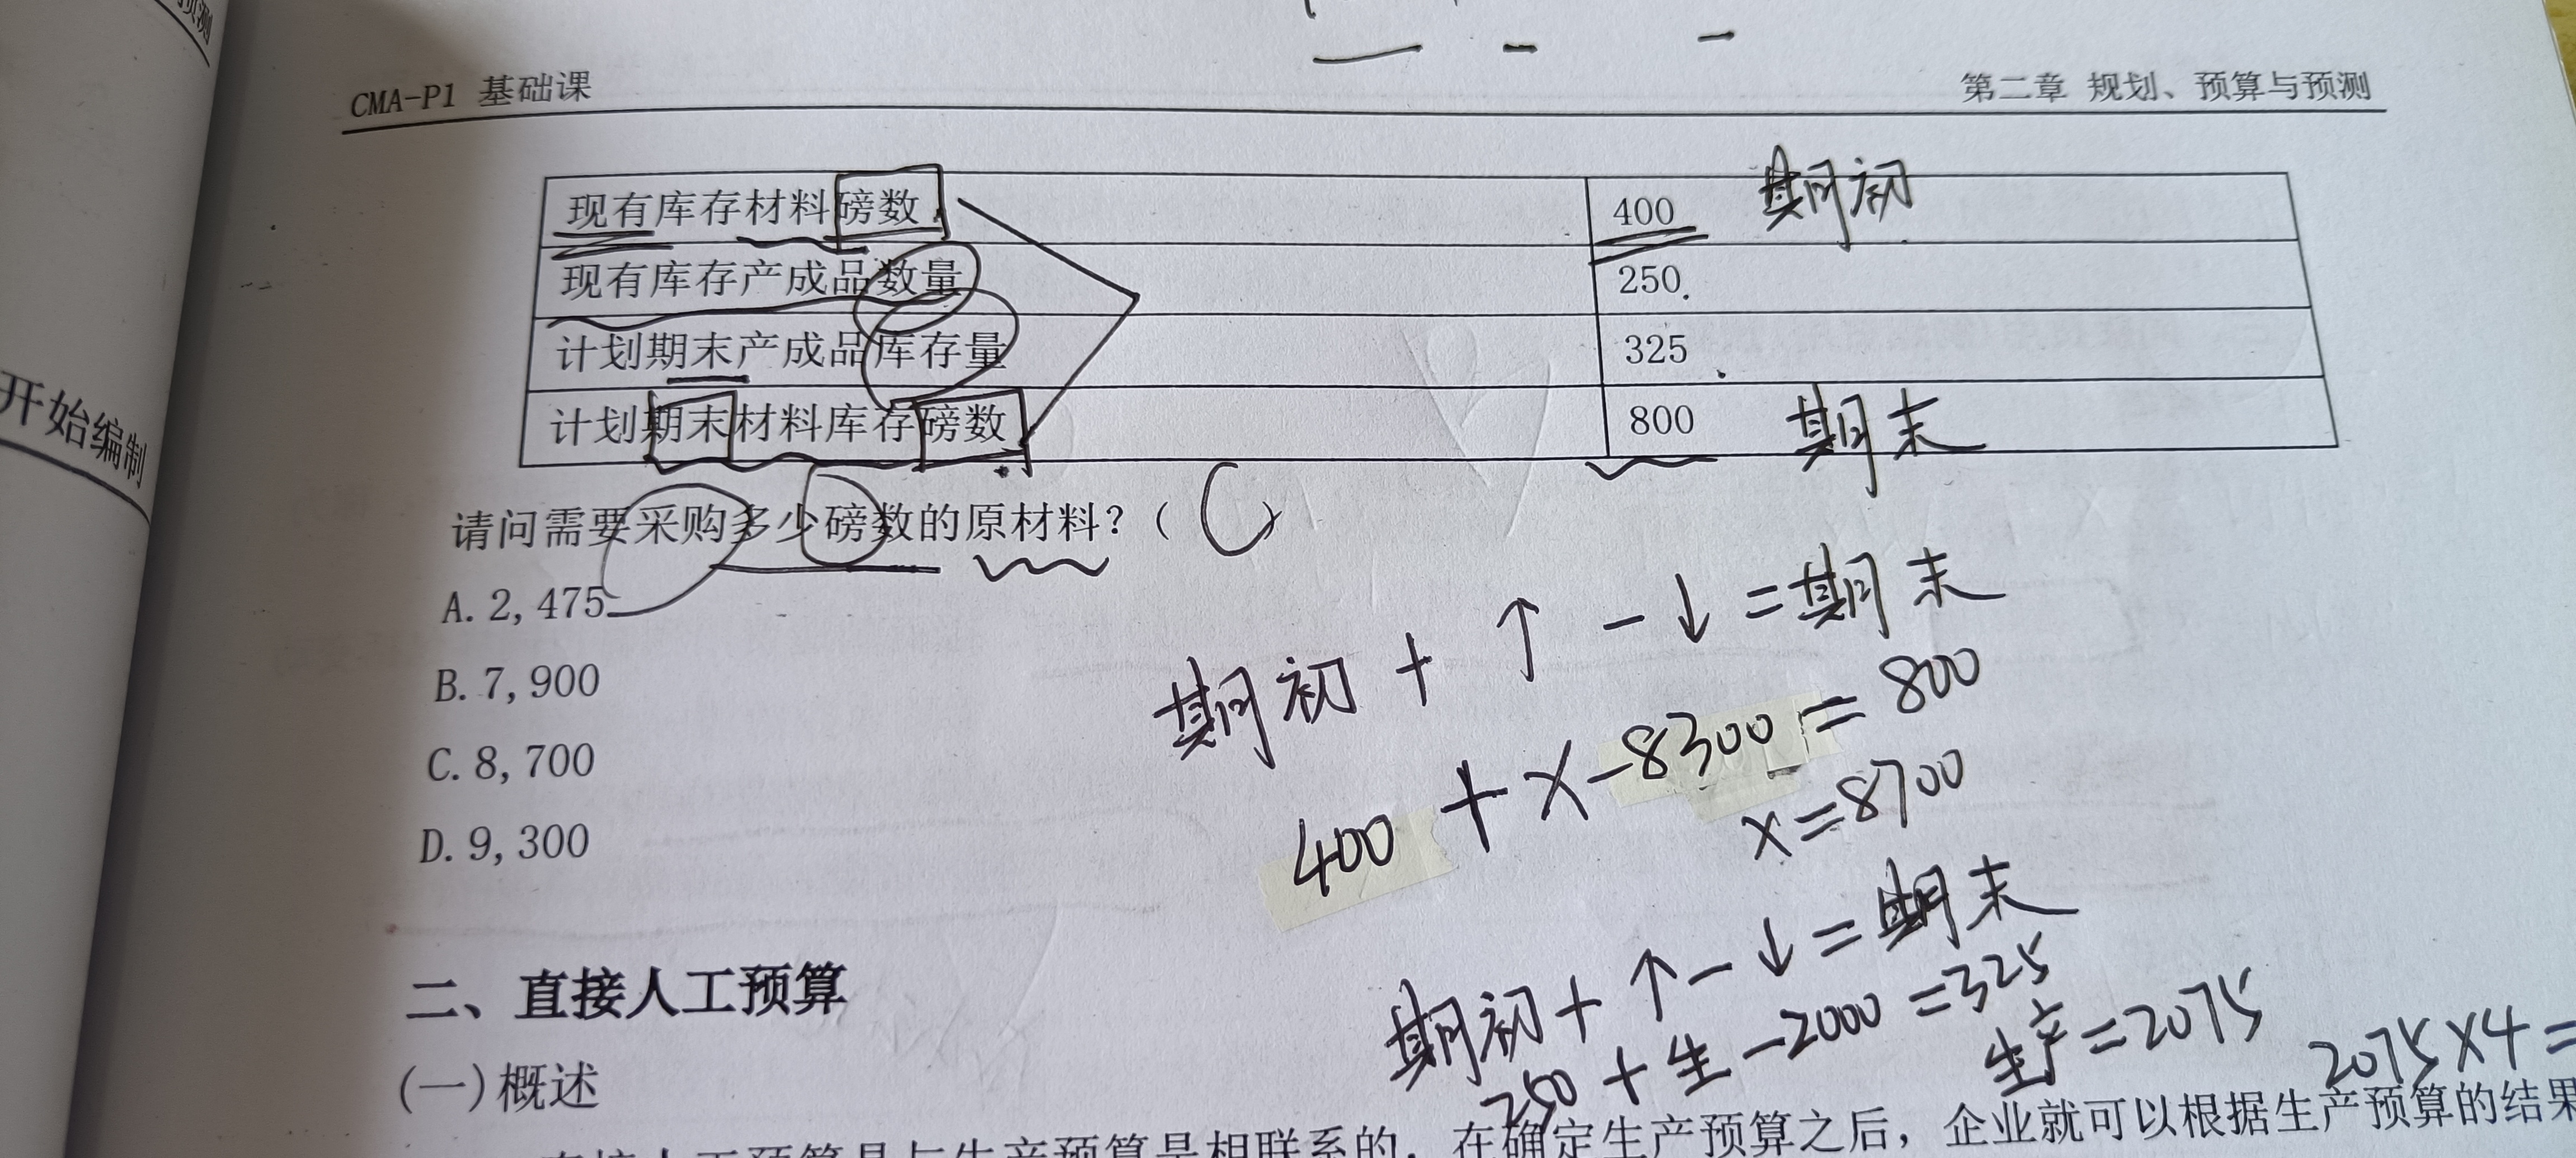 CMA-P1 基础课
第二章 规划、预算与预测
现有库存材料磅数 400 期初
现有库存产成品数量 250
计划期末产成品库存量 325
计划期末材料库存磅数 800 期末
请问需要采购多少磅数的原材料？（ C ）
A. 2,475
B. 7,900
C. 8,700
D. 9,300
期初 + ↑ - ↓ = 期末
400 + x - 8300 = 800
x = 8700
期初 + ↑ - ↓ = 期末
250 + 生 - 2000 = 325
生产 = 2075
2075 × 4 =
二、直接人工预算
(一)概述
直接人工预算是与生产预算是相联系的，在确定生产预算之后，企业就可以根据生产预算的结果
开始编制